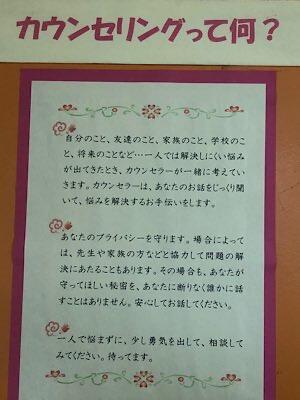 カウンセリングって何？
自分のこと、友達のこと、家族のこと、学校のこ
と、将来のことなど…一人では解決しにくい悩み
が出てきたとき、カウンセラーが一緒に考えてい
きます。カウンセラーは、あなたのお話をじっくり聞
いて、悩みを解決するお手伝いをします。
あなたのプライバシーを守ります。場合によって
は、先生や家族の方などと協力して問題の解
決にあたることもあります。その場合も、あなたが
守ってほしい秘密を、あなたに断りなく誰かに話
すことはありません。安心してお話してください。
一人で悩まずに、少し勇気を出して、相談して
みてください。待ってます。